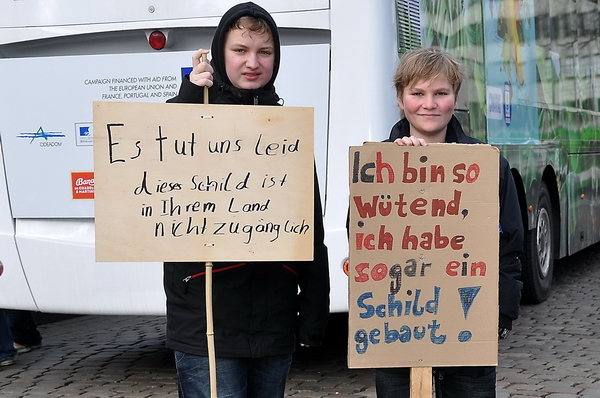 CAMPAIGN FINANCED WITH AID FROM
THE EUROPEAN UNION AND
FRANCE, PORTUGAL AND SPAIN
ODEADOM
Es tut uns leid
dieses Schild ist
in Ihrem Land
nicht zugänglich
Ich bin so
wütend,
ich habe
sogar ein
Schild
gebaut!